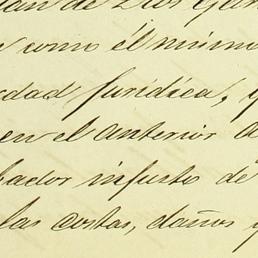 Juan de Dios Gar
como él mismo
dad Jurídica, y
en el anterior
bador injusto de
las costas, daños y